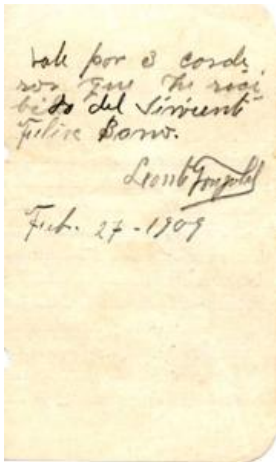 Vale por 3 corde
ros que he reci
bido del Sirvient
Felix Bano.
Leont Gonzalez
Feb. 27-1909